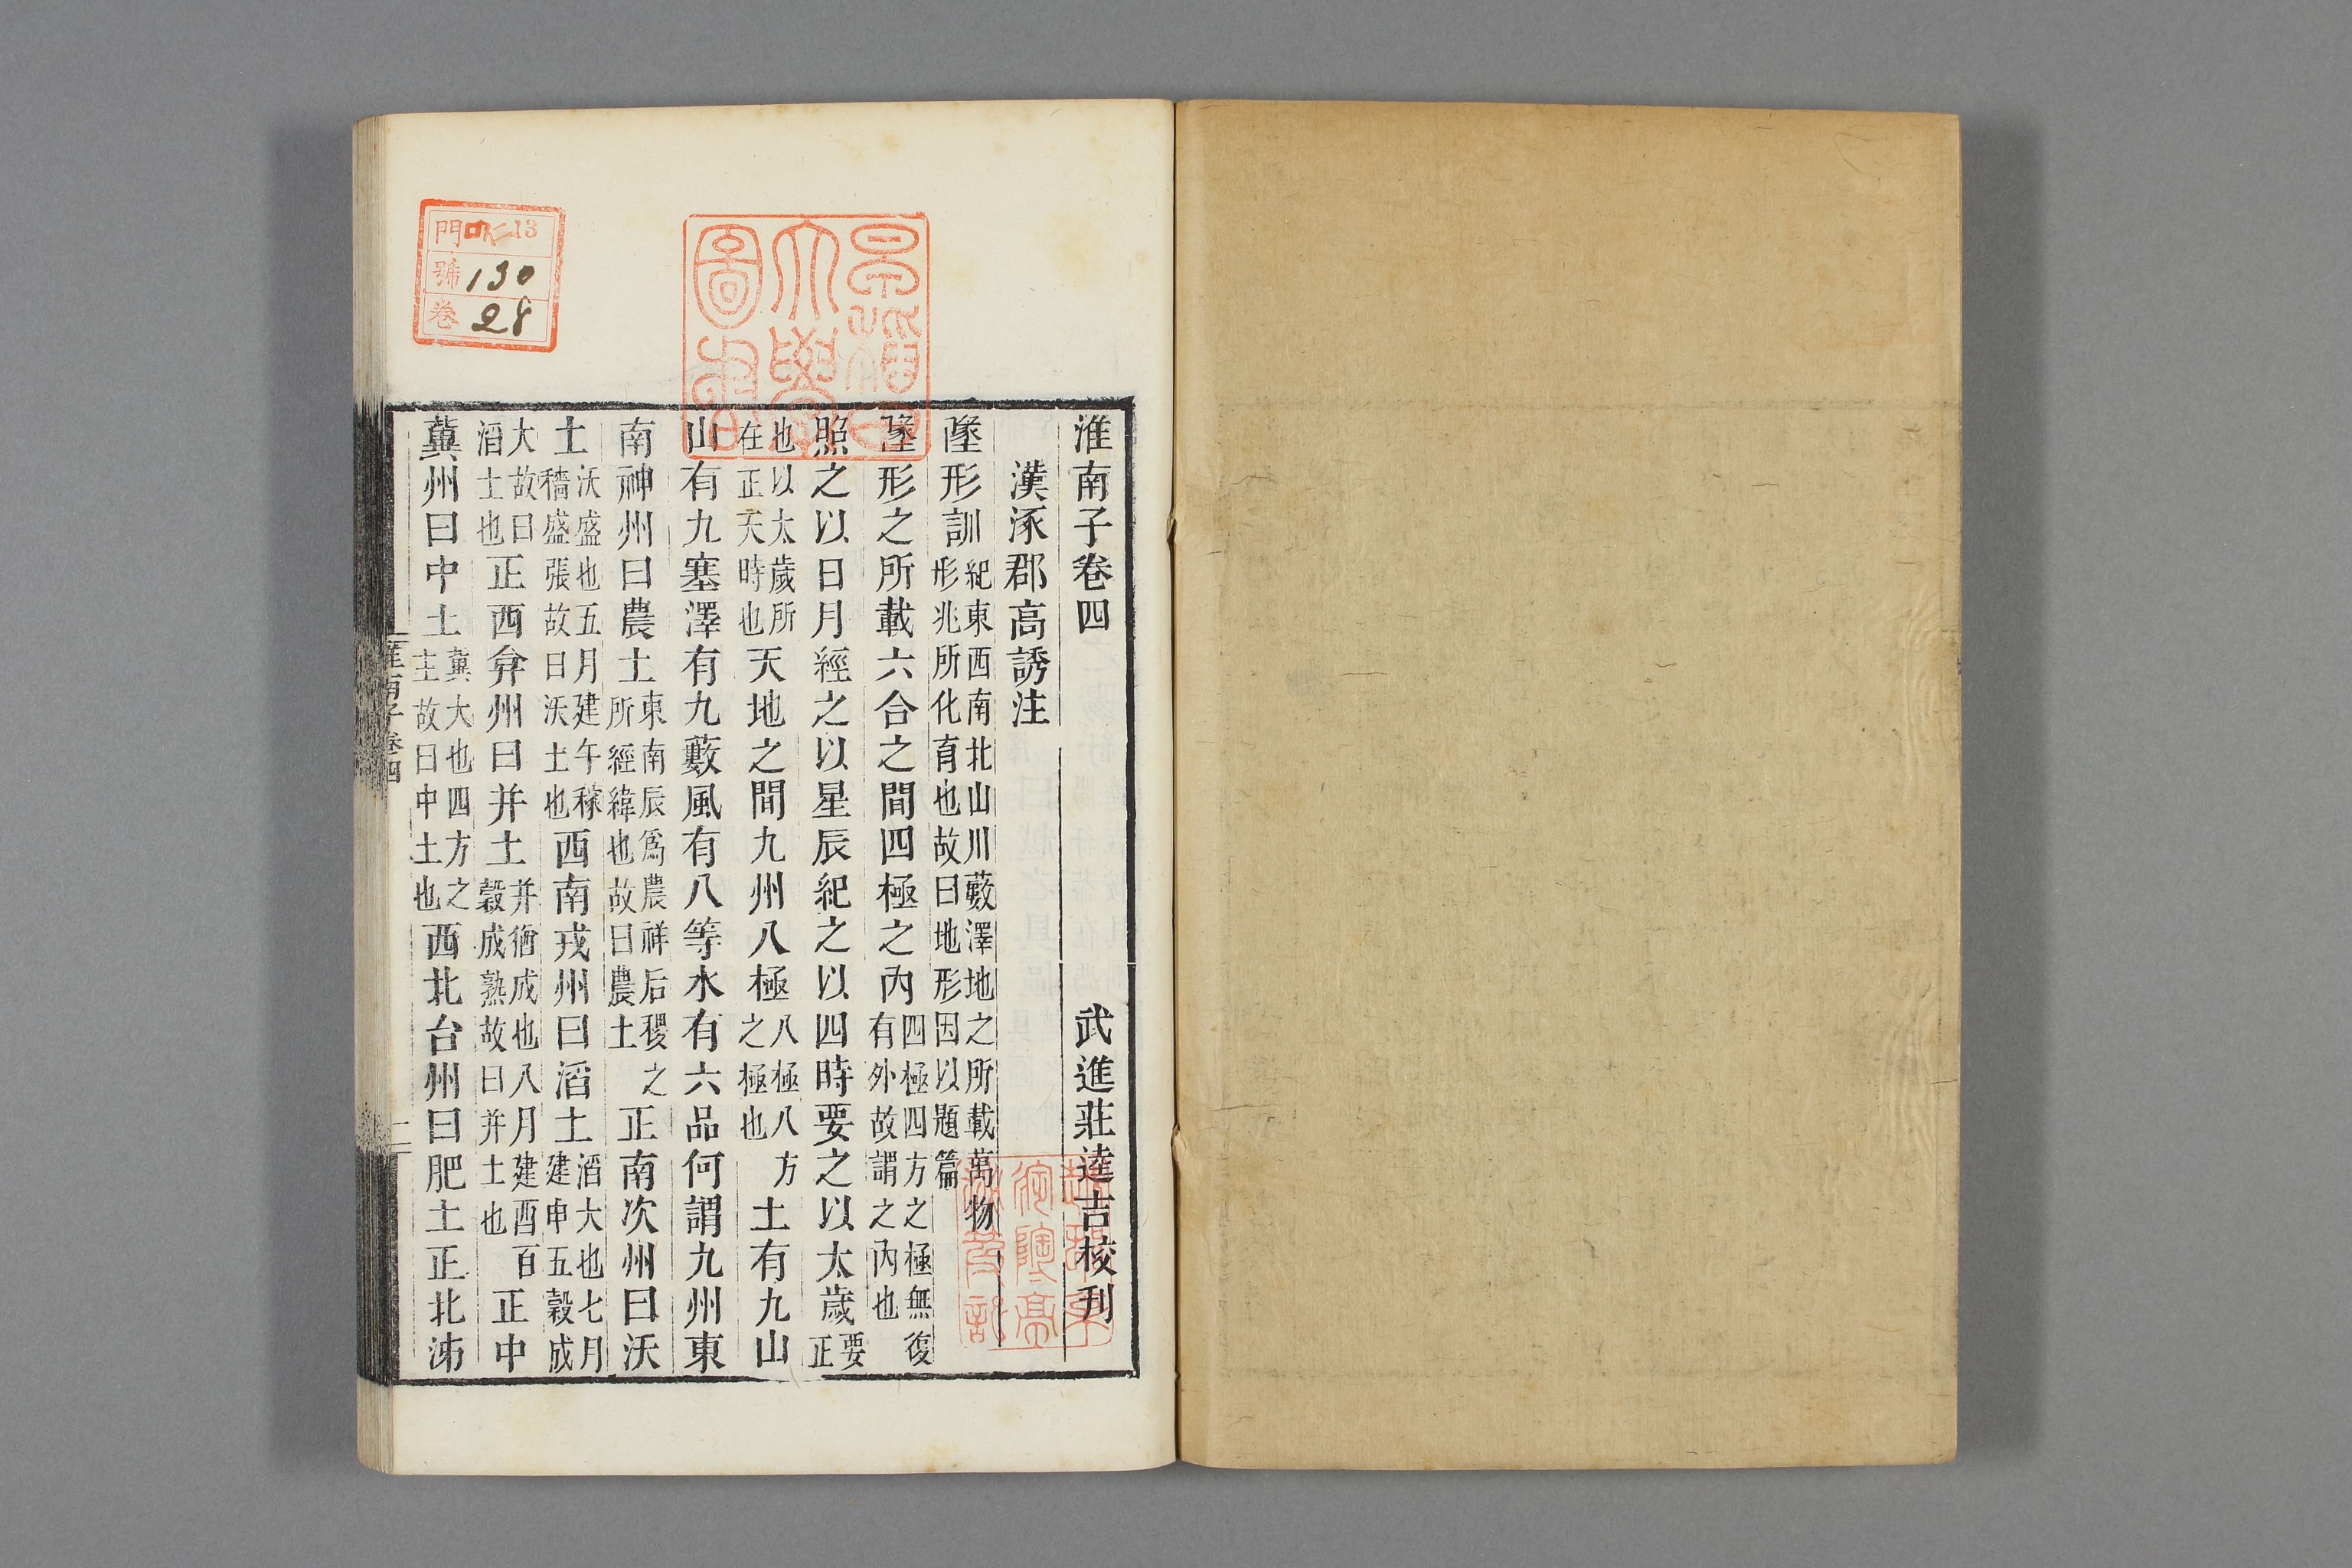 淮南子卷四
武進莊逵吉校刊
漢涿郡高誘注
墬形訓紀東西南北山川藪澤地之所載萬物形兆所化育也故曰地形因以題篇
墬形之所載六合之間四極之內四極四方之極無復有外故謂之內也
照之以日月經之以星辰紀之以四時要之以太歲要正
也以太歲所在正天時也天地之間九州八極八極八方之極也土有九山
山有九塞澤有九藪風有八等水有六品何謂九州東
南神州曰農土東南辰爲農祥后稷之所經緯也故曰農土正南次州曰沃
土沃盛也五月建午稼穡盛張故曰沃土也西南戎州曰滔土滔大也七月建申五穀成
大故曰滔土也正西弇州曰并土并猶成也八月建酉百穀成熟故曰并土也正中
冀州曰中土冀大也四方之主故曰中土也西北台州曰肥土正北泲
淮南子卷四
一
早稻田大學圖書
門 13
號 190
卷 28